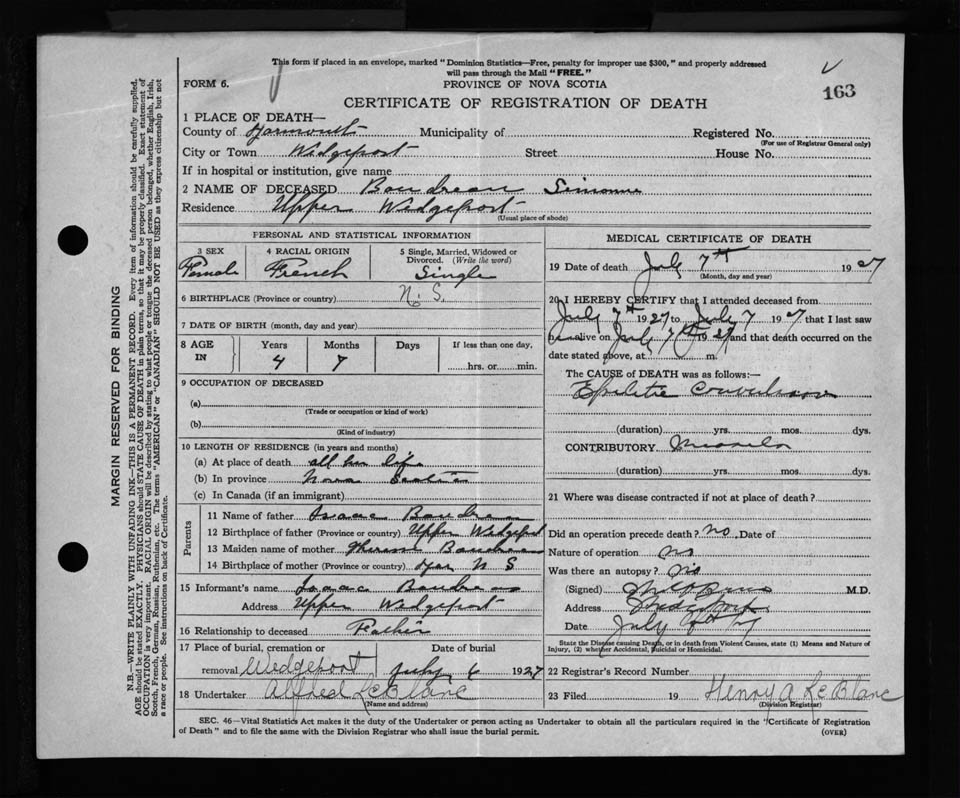 This form if placed in an envelope, marked "Dominion Statistics—Free, penalty for improper use $300," and properly addressed
will pass through the Mail "FREE."
FORM 6.
PROVINCE OF NOVA SCOTIA
163
CERTIFICATE OF REGISTRATION OF DEATH
1 PLACE OF DEATH—
County of Yarmouth Municipality of Registered No.
(For use of Registrar General only)
City or Town Widgeport Street House No.
If in hospital or institution, give name
2 NAME OF DECEASED Boudreau Simonne
Residence Upper Widgeport
(Usual place of abode)
PERSONAL AND STATISTICAL INFORMATION
3 SEX 4 RACIAL ORIGIN 5 Single, Married, Widowed or
Divorced. (Write the word)
Female French Single
6 BIRTHPLACE (Province or country) N. S.
7 DATE OF BIRTH (month, day and year)
8 AGE IN Years Months Days If less than one day,
4 7 hrs. or min.
9 OCCUPATION OF DECEASED
(a)
(Trade or occupation or kind of work)
(b)
(Kind of industry)
10 LENGTH OF RESIDENCE (in years and months)
(a) At place of death all her life
(b) In province Nova Scotia
(c) In Canada (if an immigrant)
Parents
11 Name of father Isaac Boudreau
12 Birthplace of father (Province or country) Upper Widgeport
13 Maiden name of mother Boudreau
14 Birthplace of mother (Province or country) Yar N S
15 Informant's name Isaac Boudreau
Address Upper Widgeport
16 Relationship to deceased Father
17 Place of burial, cremation or Date of burial
removal Wedgeport 1927
18 Undertaker Alfred LeBlanc
(Name and address)
MEDICAL CERTIFICATE OF DEATH
19 Date of death July 7th 1927
(Month, day and year)
20 I HEREBY CERTIFY that I attended deceased from
July 7th 1927 to July 7 1927 that I last saw
alive on July 7th 1927 and that death occurred on the
date stated above, at m.
The CAUSE of DEATH was as follows:—
Convulsions
(duration) yrs. mos. dys.
CONTRIBUTORY
(duration) yrs. mos. dys.
21 Where was disease contracted if not at place of death?
Did an operation precede death? no Date of
Nature of operation no
Was there an autopsy? no
(Signed) M.D.
Address
Date July
State the Disease causing Death, or in death from Violent Causes, state (1) Means and Nature of
Injury, (2) whether Accidental, Suicidal or Homicidal.
22 Registrar's Record Number
23 Filed 19 Henry A LeBlanc
(Division Registrar)
SEC. 46—Vital Statistics Act makes it the duty of the Undertaker or person acting as Undertaker to obtain all the particulars required in the "Certificate of Registration
of Death" and to file the same with the Division Registrar who shall issue the burial permit.
(OVER)
MARGIN RESERVED FOR BINDING
N.B.—WRITE PLAINLY WITH UNFADING INK—THIS IS A PERMANENT RECORD. Every item of information should be carefully supplied.
AGE should be stated EXACTLY. PHYSICIANS should STATE CAUSE OF DEATH in plain terms, so that it may be properly classified. Exact statement of
OCCUPATION is very important. RACIAL ORIGIN will be described by stating to what people or tongue the deceased person belonged, whether English, Irish,
Scotch, French, German, Russian, Ruthenian, etc. The terms "AMERICAN" or "CANADIAN" SHOULD NOT BE USED as they express citizenship but not
a race or people. See instructions on back of Certificate.